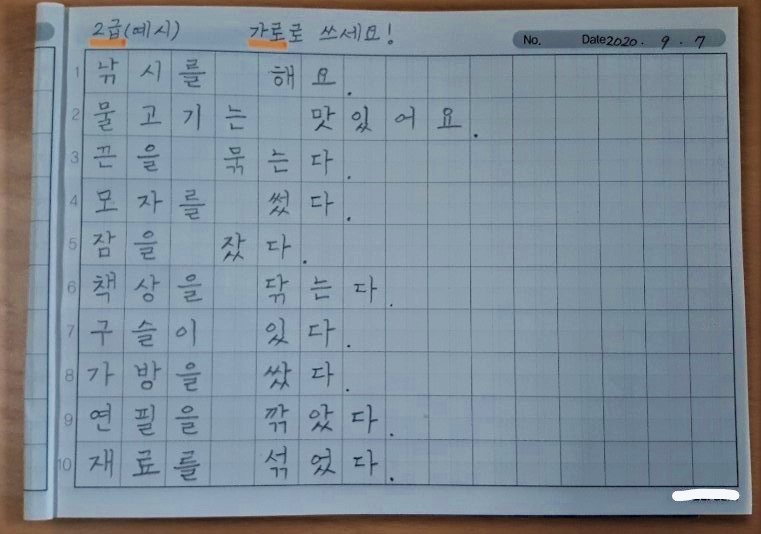 2급(예시) 가로로 쓰세요!
No. Date 2020. 9. 7
1 낚시를 해요.
2 물고기는 맛있어요.
3 끈을 묶는다.
4 모자를 썼다.
5 잠을 잤다.
6 책상을 닦는다.
7 구슬이 있다.
8 가방을 쌌다.
9 연필을 깎았다.
10 재료를 섞었다.